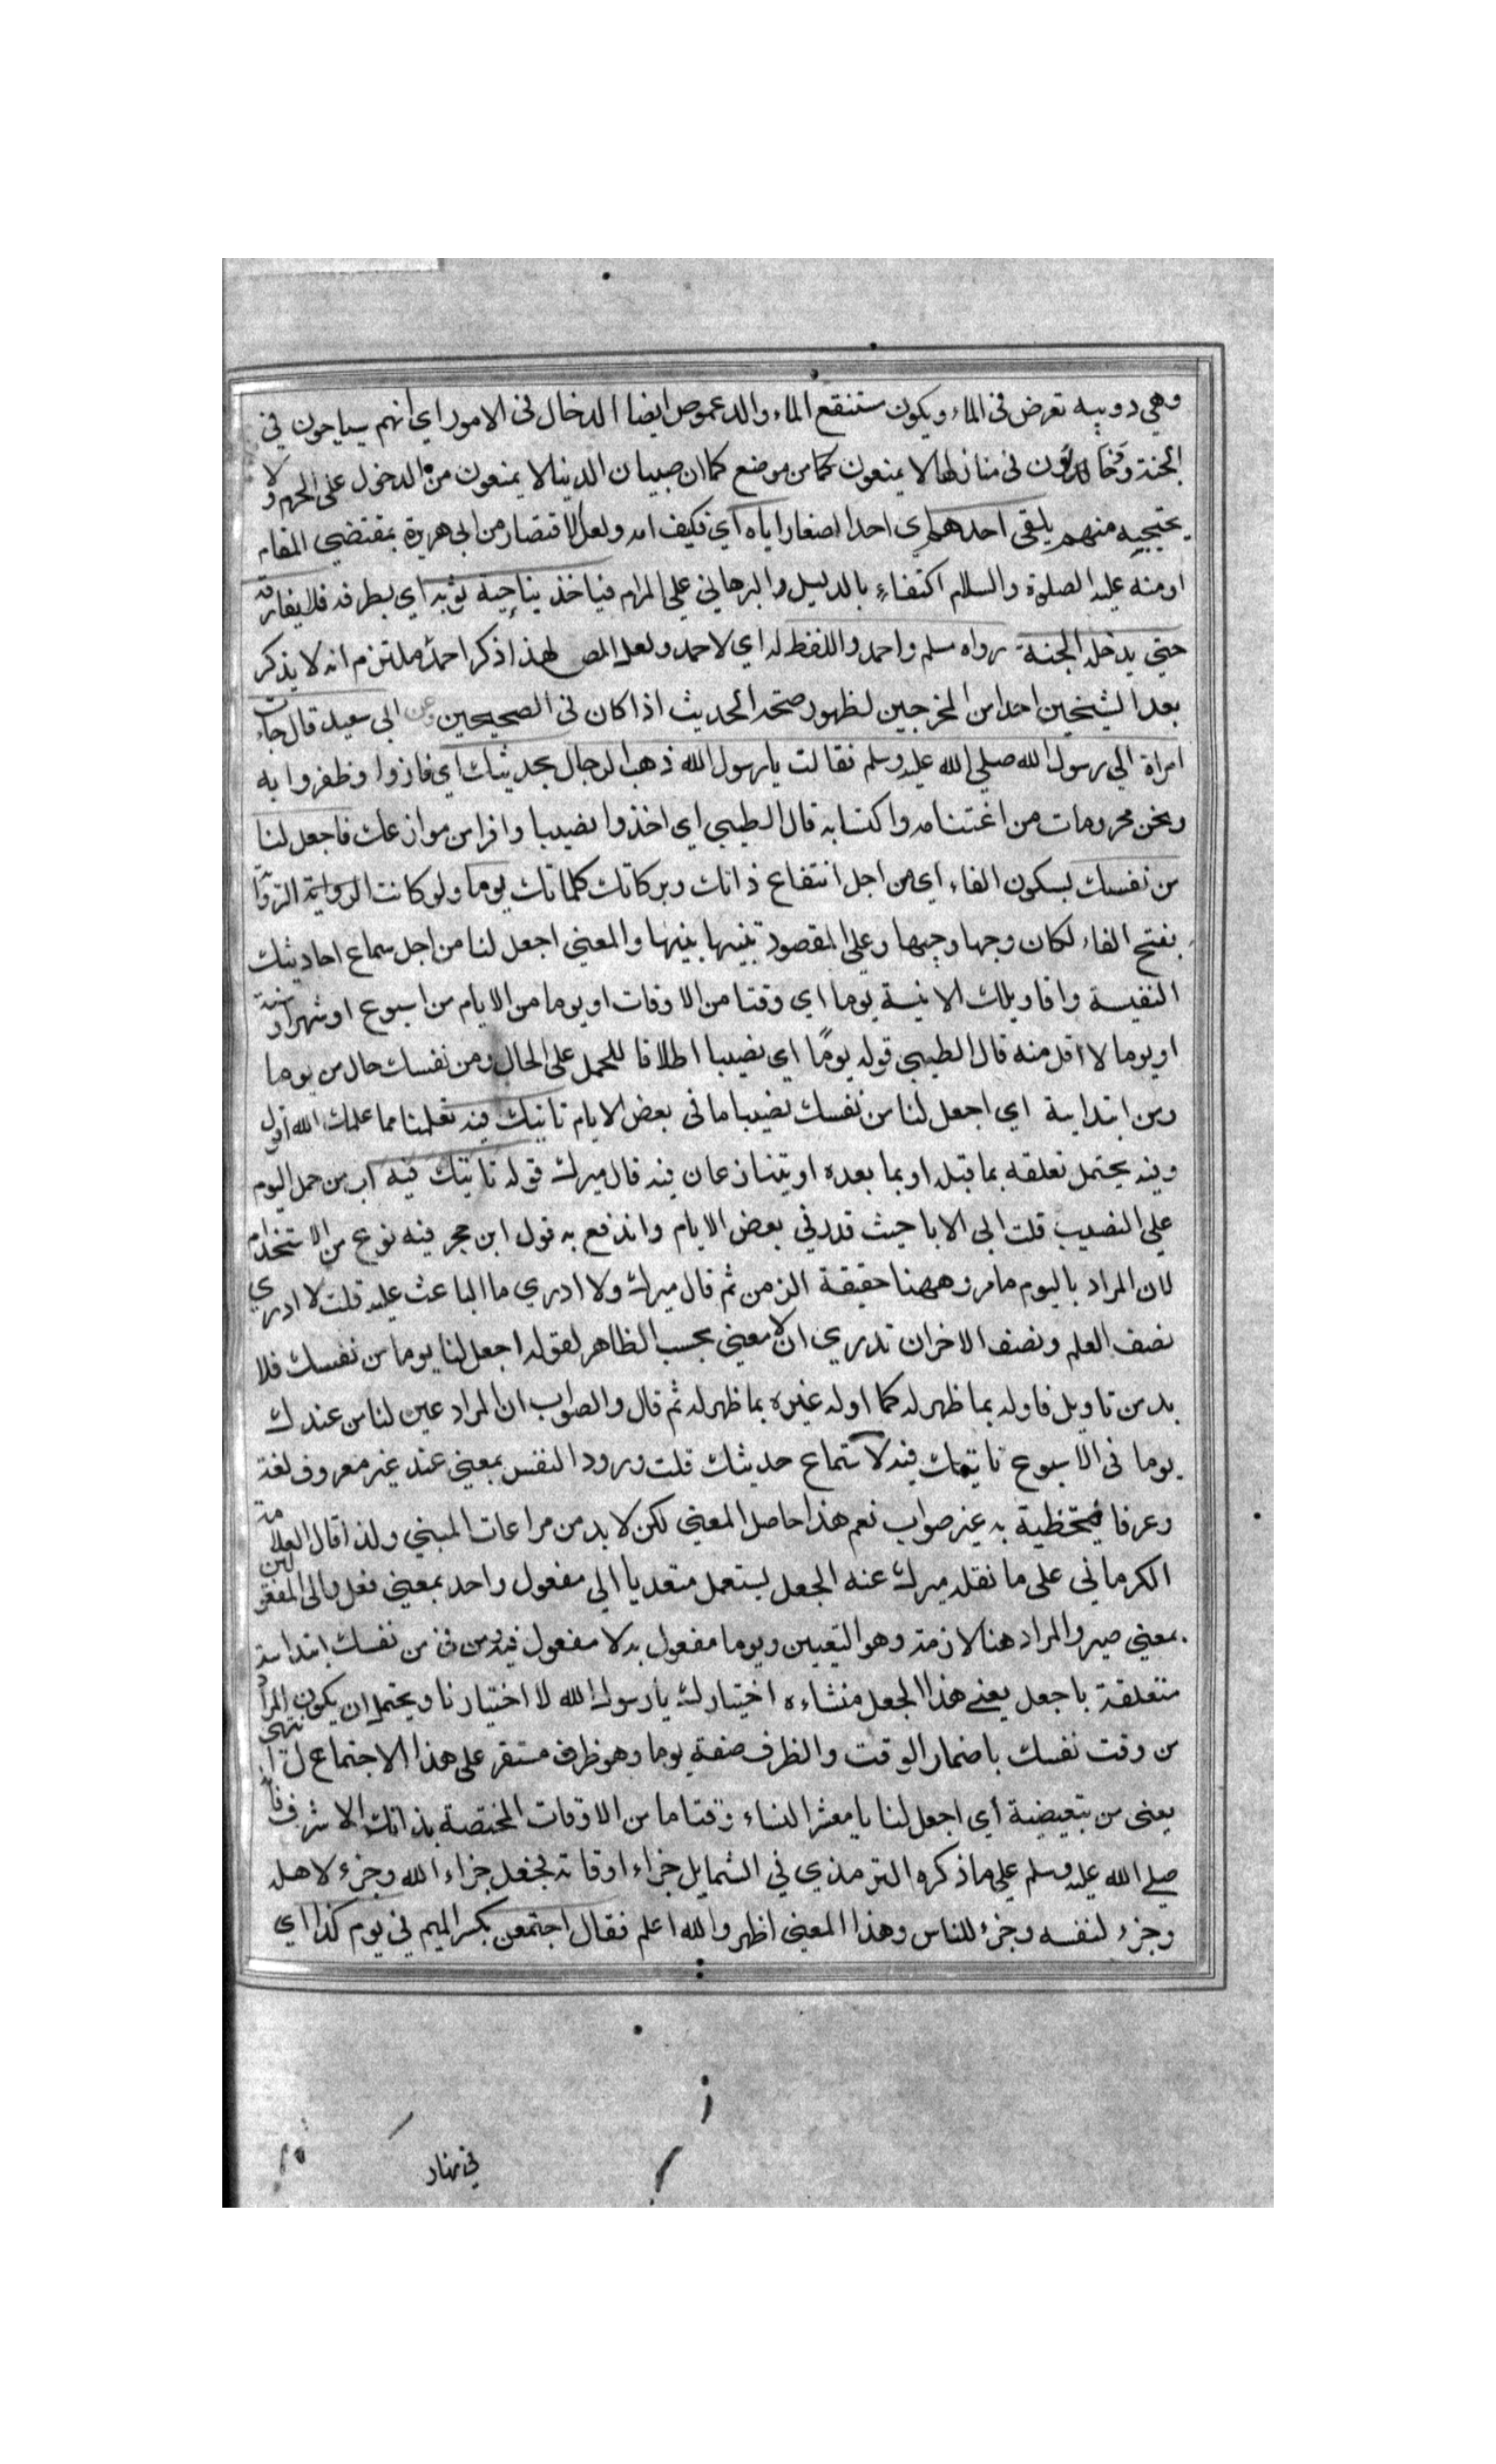 وهي دويبه تعرض في الماء ويكون ستنقع الماء والدعموص ايضا الدخال في الامور اي انهم سياحون في
الجنة ودخالون في منازلها لا يمنعون كما من موضع كما ان صبيان الدنيا لا يمنعون من الدخول على الحرم ولا
يحتجبه منهم يلقى احدهم اي احد الصغار اياه اي فكيف امه ولعل الاقتصار من ابي هريرة بمقتضي المقام
او منه عليه الصلوة والسلام اكتفاء بالدليل والبرهاني علي المرام فياخذ بناحية ثوبه اي بطرفه فلا يفارقه
حتي يدخله الجنة رواه مسلم واحمد واللفظ له اي لاحمد ولعل المص لهذا ذكر احمد ملتزم انه لا يذكر
بعد الشيخين احدا من المخرجين لظهور صحة الحديث اذا كان في الصحيحين وعن ابي سعيد قال جاءت
امراة الي رسول الله صلي الله عليه وسلم فقالت يا رسول الله ذهب الرجال بحديثك اي فازوا وظفروا به
ونحن محرومات من اغتنامه واكتسابه قال الطيبي اي اخذوا نصيبا وافرا من مواعظك فاجعل لنا
من نفسك بسكون الفاء اي من اجل انتفاع ذاتك وبركاتك كلماتك يوما ولو كانت الرواية
بفتح الفاء لكان وجها وجيها وعلى المقصود تنبيها بنيها والمعني اجعل لنا من اجل سماع احاديثك
النفيسة واقاويلك الانيسة يوما اي وقتا من الاوقات او يوما من الايام من اسبوع او شهر او سنة
او يوما لا اقل منه قال الطيبي قوله يومًا اي نصيبا اطلاقا للمحل على الحال ومن نفسك حال من يوما
ومن ابتدايية اي اجعل لنا من نفسك نصيبا ما في بعض الايام ناتيك فيه تعلمنا مما علمك الله اقول
وفيه يحتمل تعلقه بما قبله او بما بعده او يتنازعان فيه قال ميرك قوله ناتيك فيه اب من حمل اليوم
علي النصيب قلت ابي الابا حيث قدر في بعض الايام واندفع به قول ابن حجر فيه نوع من الاستخدام
لان المراد باليوم ما مر وههنا حقيقة الزمن ثم قال ميرك ولا ادري ما الباعث عليه قلت لا ادري
نصف العلم ونصف الاخر ان تدري ان لا معني بحسب الظاهر لقوله اجعل لنا يوما من نفسك فلا
بد من تاويل فاوله بما ظهر له كما اوله غيره بما ظهر له ثم قال والصواب ان المراد عين لنا من عندك
يوما في الاسبوع ناتيك فيه لاستماع حديثك قلت ورود النفس بمعني عند غير معروف لغة
وعرفا فتخطية به غير صواب نعم هذا حاصل المعني لكن لا بد من مراعات المبني ولذا قال العلامة
الكرماني على ما نقله ميرك عنه الجعل يستعمل متعديا الي مفعول واحد بمعني فعل والى المفعولين
بمعني صير والمراد هنا لازمه وهو التعيين ويوما مفعول به لا مفعول فيه ومن في من نفسك ابتداءية
متعلقة باجعل يعني هذا الجعل منشاءه اختيارك يا رسول الله لا اختيارنا ويحتمل ان يكون المراد
من وقت نفسك باضمار الوقت والظرف صفة يوما وهو ظرف مستقر على هذا الاجتماع انتهى
يعني من تبعيضية اي اجعل لنا يا معشر النساء وقتا ما من الاوقات المختصة بذاتك الاشرف فانه
صلي الله عليه وسلم علي ما ذكره الترمذي في الشمايل جزاء اوقاته فجعل جزاء الله وجزء لاهله
وجزء لنفسه وجزء للناس وهذا المعني اظهر والله اعلم فقال اجتمعن بكسر الميم في يوم كذا اي
في نهار